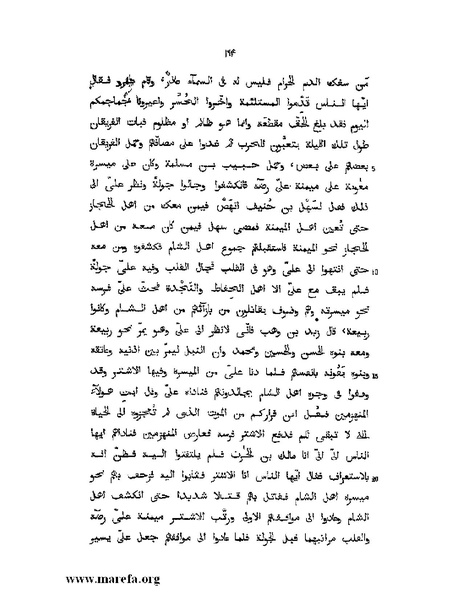 ١٩٤
مَن سفك الدم الحرام فليس له فى السمآء عاذر، وقام فقال
ايّها الناس قدّموا المستلئمة واخّروا الحُسَّر واعيرونا جماجمكم
اليوم فقد بلغ الحقّ مقطعَه وانما هو ظالم او مظلوم فبات الفريقان
طول تلك الليلة يتعبَّون للحرب ثم غدوا على مصافّهم وحمل الفريقان
بعضهم على بعض، وحمل حبيب بن مسلمة وكان على ميسرة ٥
معوية على ميمنة علىّ رضّه فانكشفوا وجالوا جولةً ونظر علىّ الى
ذلك فقال لسَهْل بن حُنيف انهَضْ فيمن معك من اهل الحجاز
حتى تُعين اهل الميمنة فمضى سهل فيمن كان معه من اهل
الحجاز نحو الميمنة فاستقبلهم جموع اهل الشام فكشفوه ومن معه
حتى انتهوا الى علىّ وهو فى القلب فجال القلب وفيه علىّ جولةً ١٠
فلم يبق مع علىّ الا اهل الحِفاظ والنَّجْدة فحثّ علىّ فرسه
نحو ميسرته وهم وقوف يقاتلون من بازآئهم من اهل الشام وكانوا
ربيعة، قال زيد بن وهب فانّى لانظر الى علىّ وهو يمرّ نحو ربيعة
ومعه بنوه الحسن والحسين ومحمد وان النبل ليمرّ بين اذنيه وعاتقه
وبنوه يَقُونه بانفسهم فلما دنا علىّ من الميسرة وفيها الاشتر وقد ١٥
وقفوا فى وجوه اهل الشام يجالدونهم فناداه علىّ وقال ايتِ هولآء
المنهزمين فقُل اين فراركم من الموت الذى لم تُعجِزوه الى الحياة
التى لا تبقى لكم فدفع الاشتر فرسه فعارض المنهزمين فناداهم ايها
الناس الىّ الىّ انا مالك بن الحٰرث فلم يلتفتوا اليه فظنّ انه
بالاستعراف فقال ايّها الناس انا الاشتر فثابوا اليه فزحف بهم نحو ٢٠
ميسرة اهل الشام فقاتل بهم قتالا شديدا حتى انكشف اهل
الشام وعادوا الى مواقفهم الاولى ورتّب الاشتر ميمنة علىّ رضّه
والقلب مراتبهما قبل الجولة فلما عادوا الى مواقفهم جعل علىّ يسير
www.marefa.org